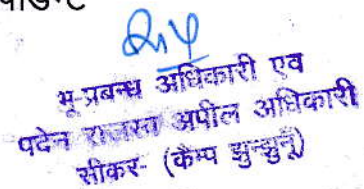 भू-प्रबन्ध अधिकारी एव
पदेन राजस्व अपील अधिकारी
सीकर- (कैम्प झुन्झुनू)